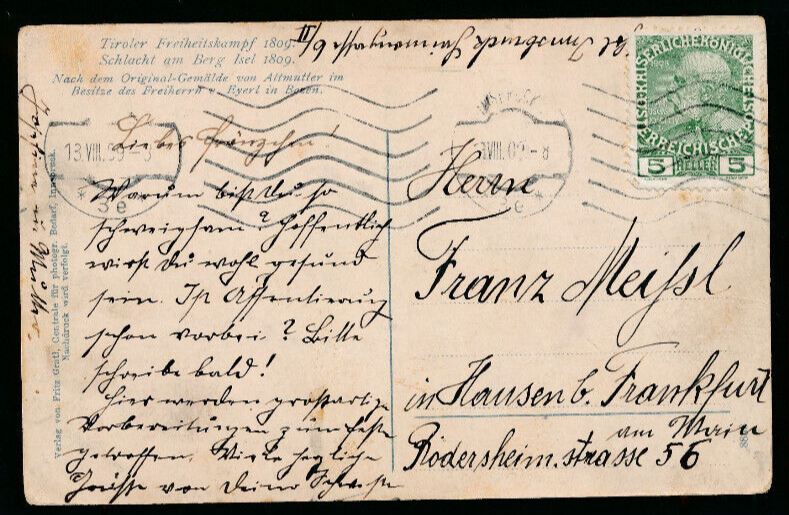 Tiroler Freiheitskampf 1809.
Schlacht am Berg Isel 1809.
Nach dem Original-Gemälde von Altmutter im
Besitze des Freiherrn v. Eyerl in Bozen.
Innsbruck 6/II
Liebes Fränzchen!
Warum bist Du so
schweigsam? Hoffentlich
wirst Du wohl gesund
sein. Ist Assentierung
schon vorbei? Bitte
schreibe bald!
Hier werden großartige
Vorbereitungen zum Feste
getroffen. Viele herzliche
Grüsse von Deiner Schwester
Verlag von Fritz Gratl, Centrale für photogr. Bedarf, Innsbruck.
Nachdruck wird verfolgt.
INNSBRUCK
13.VIII.09-8
* 3e *
13.VIII.09-8
3e *
KAISERLICHE KÖNIGLICHE ÖSTERREICHISCHE POST
5 HELLER 5
Herrn
Franz Meissl
in Hausen b. Frankfurt
am Main
Rödersheim.strasse 56